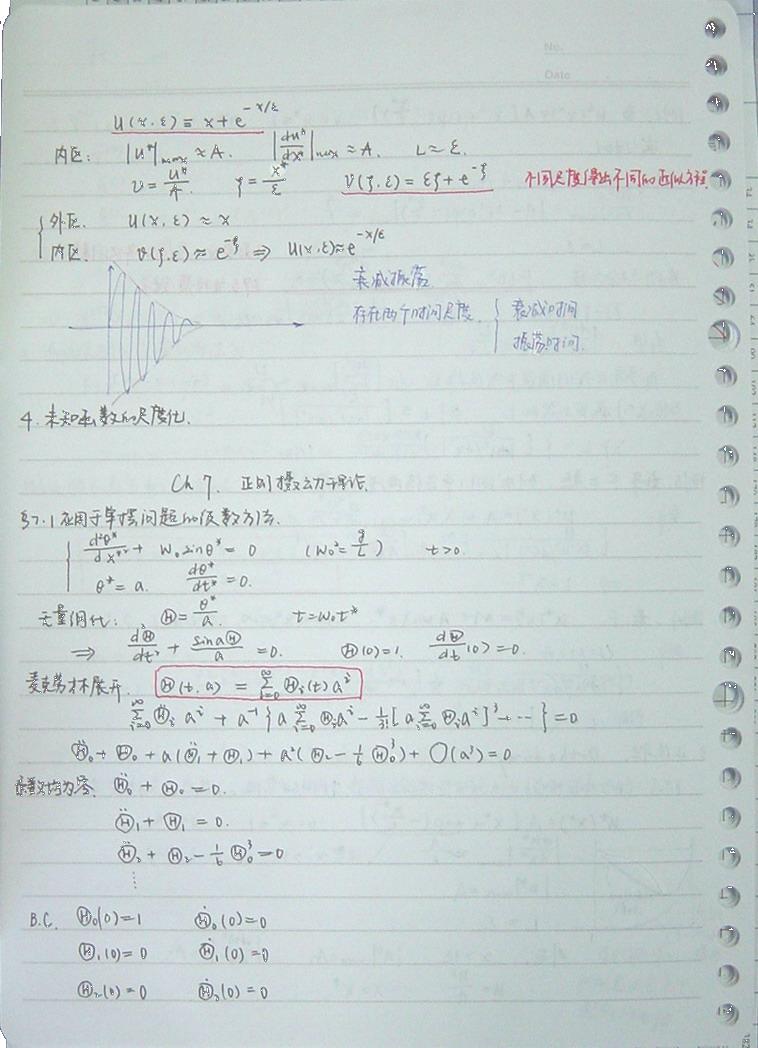 No.
Date
u(x,ε) = x + e^{-x/ε}
内区: |u*|max ≈ A. |du*/dx*|max ≈ A. L ≈ ε.
v = u*/A. ζ = x*/ε v(ζ,ε) = εζ + e^{-ζ} 不同尺度导出不同的近似方程
外区. u(x,ε) ≈ x
内区. v(ζ,ε) ≈ e^{-ζ} ⇒ u(x,ε) ≈ e^{-x/ε}
衰减振荡
存在两个时间尺度. { 衰减时间
振荡时间.
4. 未知函数的尺度化.
Ch 7. 正则摄动理论.
§7.1 应用于单摆问题的级数方法.
d²θ*/dx*² + W₀ sinθ* = 0 (W₀² = g/L) t>0.
θ* = a. dθ*/dt* = 0.
无量纲化: Θ = θ*/a t = W₀t*
⇒ d²Θ/dt² + sin aΘ/a = 0. Θ(0) = 1. dΘ/dt(0) = 0.
麦克劳林展开. Θ(t,a) = Σ_{i=0}^{∞} Θᵢ(t) aⁱ
Σ_{i=0}^{∞} Θ̈ᵢ aⁱ + a⁻¹ { a Σ_{i=0}^{∞} Θᵢ aⁱ - 1/3! [a Σ_{i=0}^{∞} Θᵢ aⁱ]³ + ··· } = 0
Θ̈₀ + Θ₀ + a(Θ̈₁ + Θ₁) + a²(Θ₂ - 1/6 Θ₀³) + O(a³) = 0
系数均为零. Θ̈₀ + Θ₀ = 0.
Θ̈₁ + Θ₁ = 0.
Θ̈₂ + Θ₂ - 1/6 Θ₀³ = 0
⋮
B.C. Θ₀(0) = 1 Θ̇₀(0) = 0
Θ₁(0) = 0 Θ̇₁(0) = 0
Θ₂(0) = 0 Θ̇₂(0) = 0